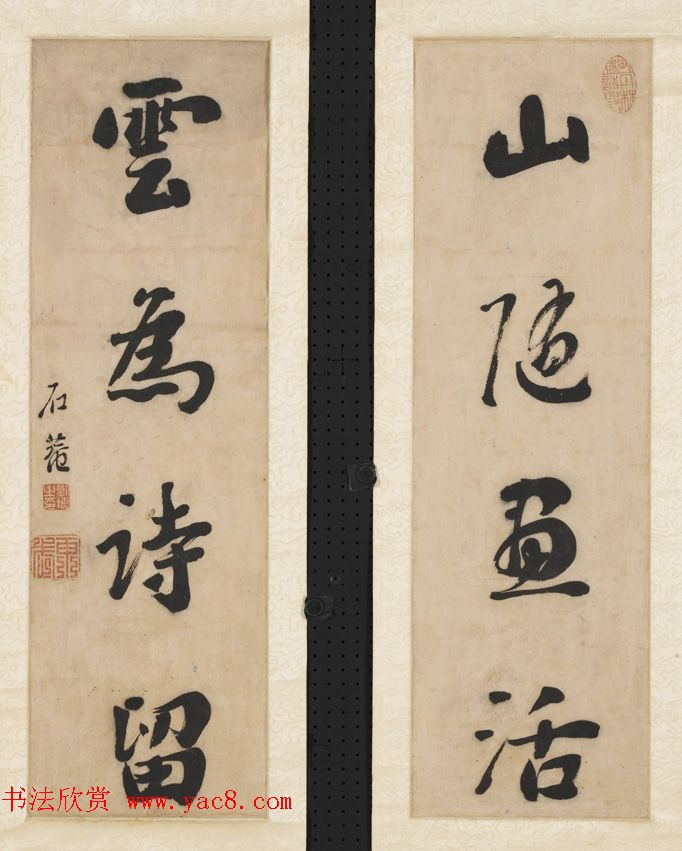 山隨畫活
雲為詩留
石菴
书法欣赏 www.yac8.com